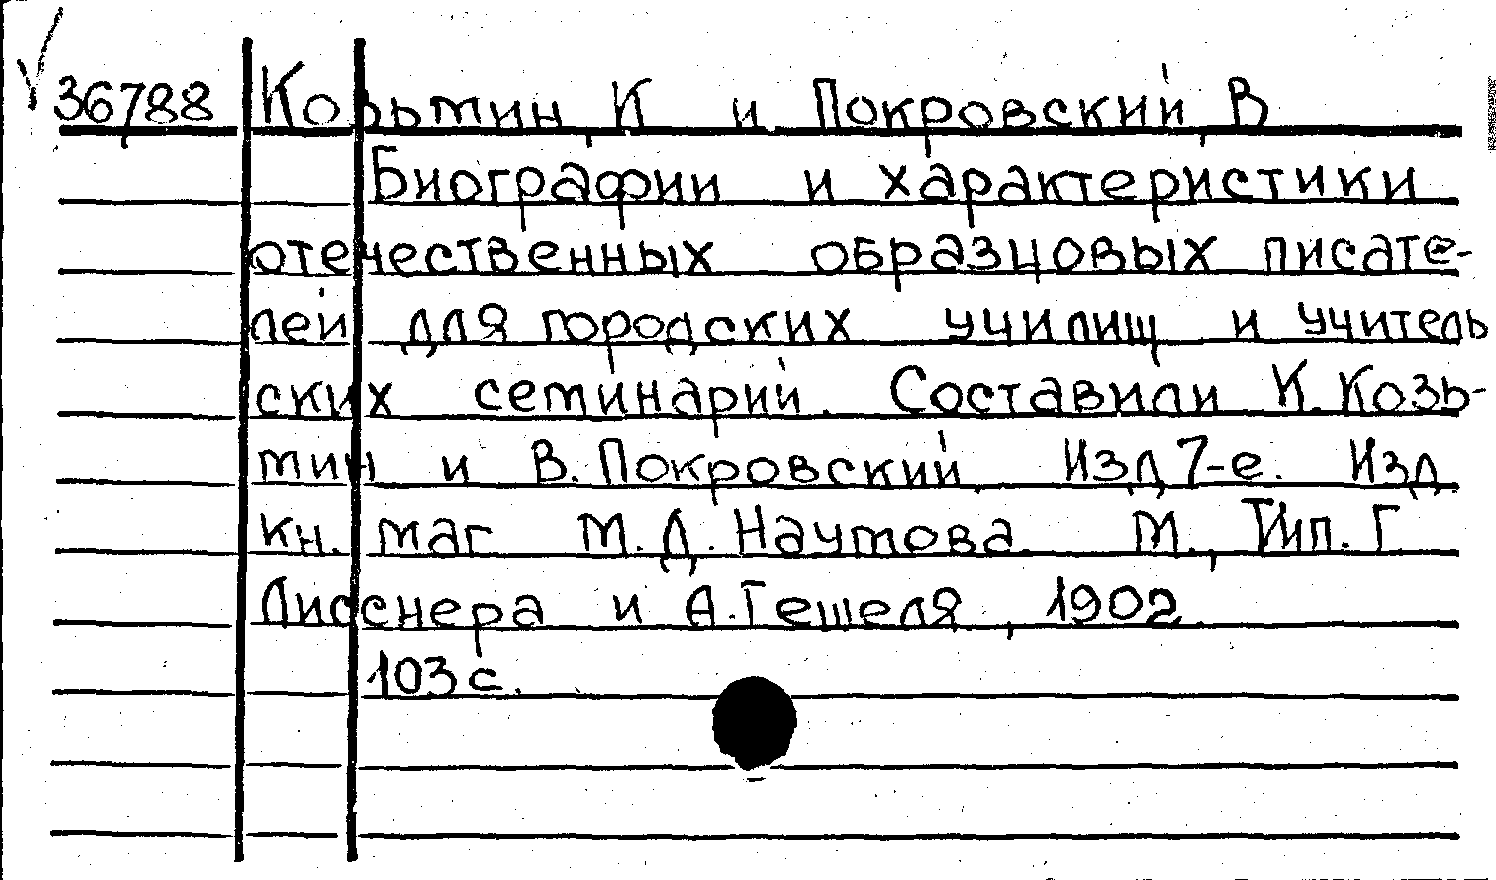 36788 Козьмин, К и Покровский, В
Биографии и характеристики
отечественных образцовых писате-
лей для городских училищ и учитель
ских семинарий. Составили К. Козь-
мин и В. Покровский. Изд 7-е. Изд
кн. маг М. Д. Наумова. М., Тип. Г
Лисснера и А. Гешеля, 1902.
103 с.